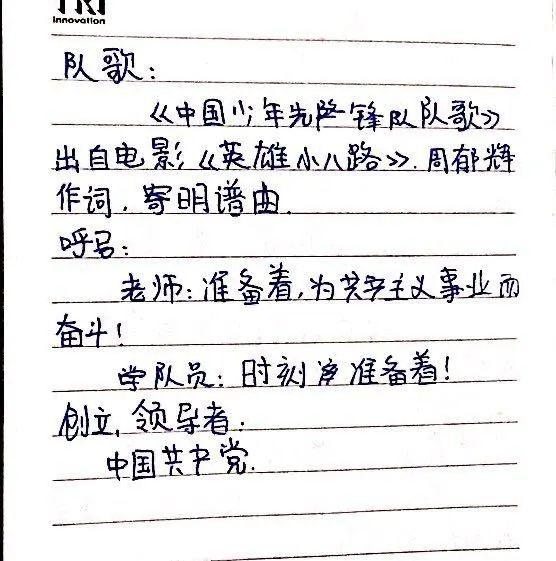 TRI
Innovation
队歌:
《中国少年先降锋队队歌》
出自电影《英雄小八路》.周郁辉
作词.寄明谱曲.
呼号:
老师:准备着,为共产主义事业而
奋斗!
学队员:时刻准备着!
创立,领导者:
中国共产党.